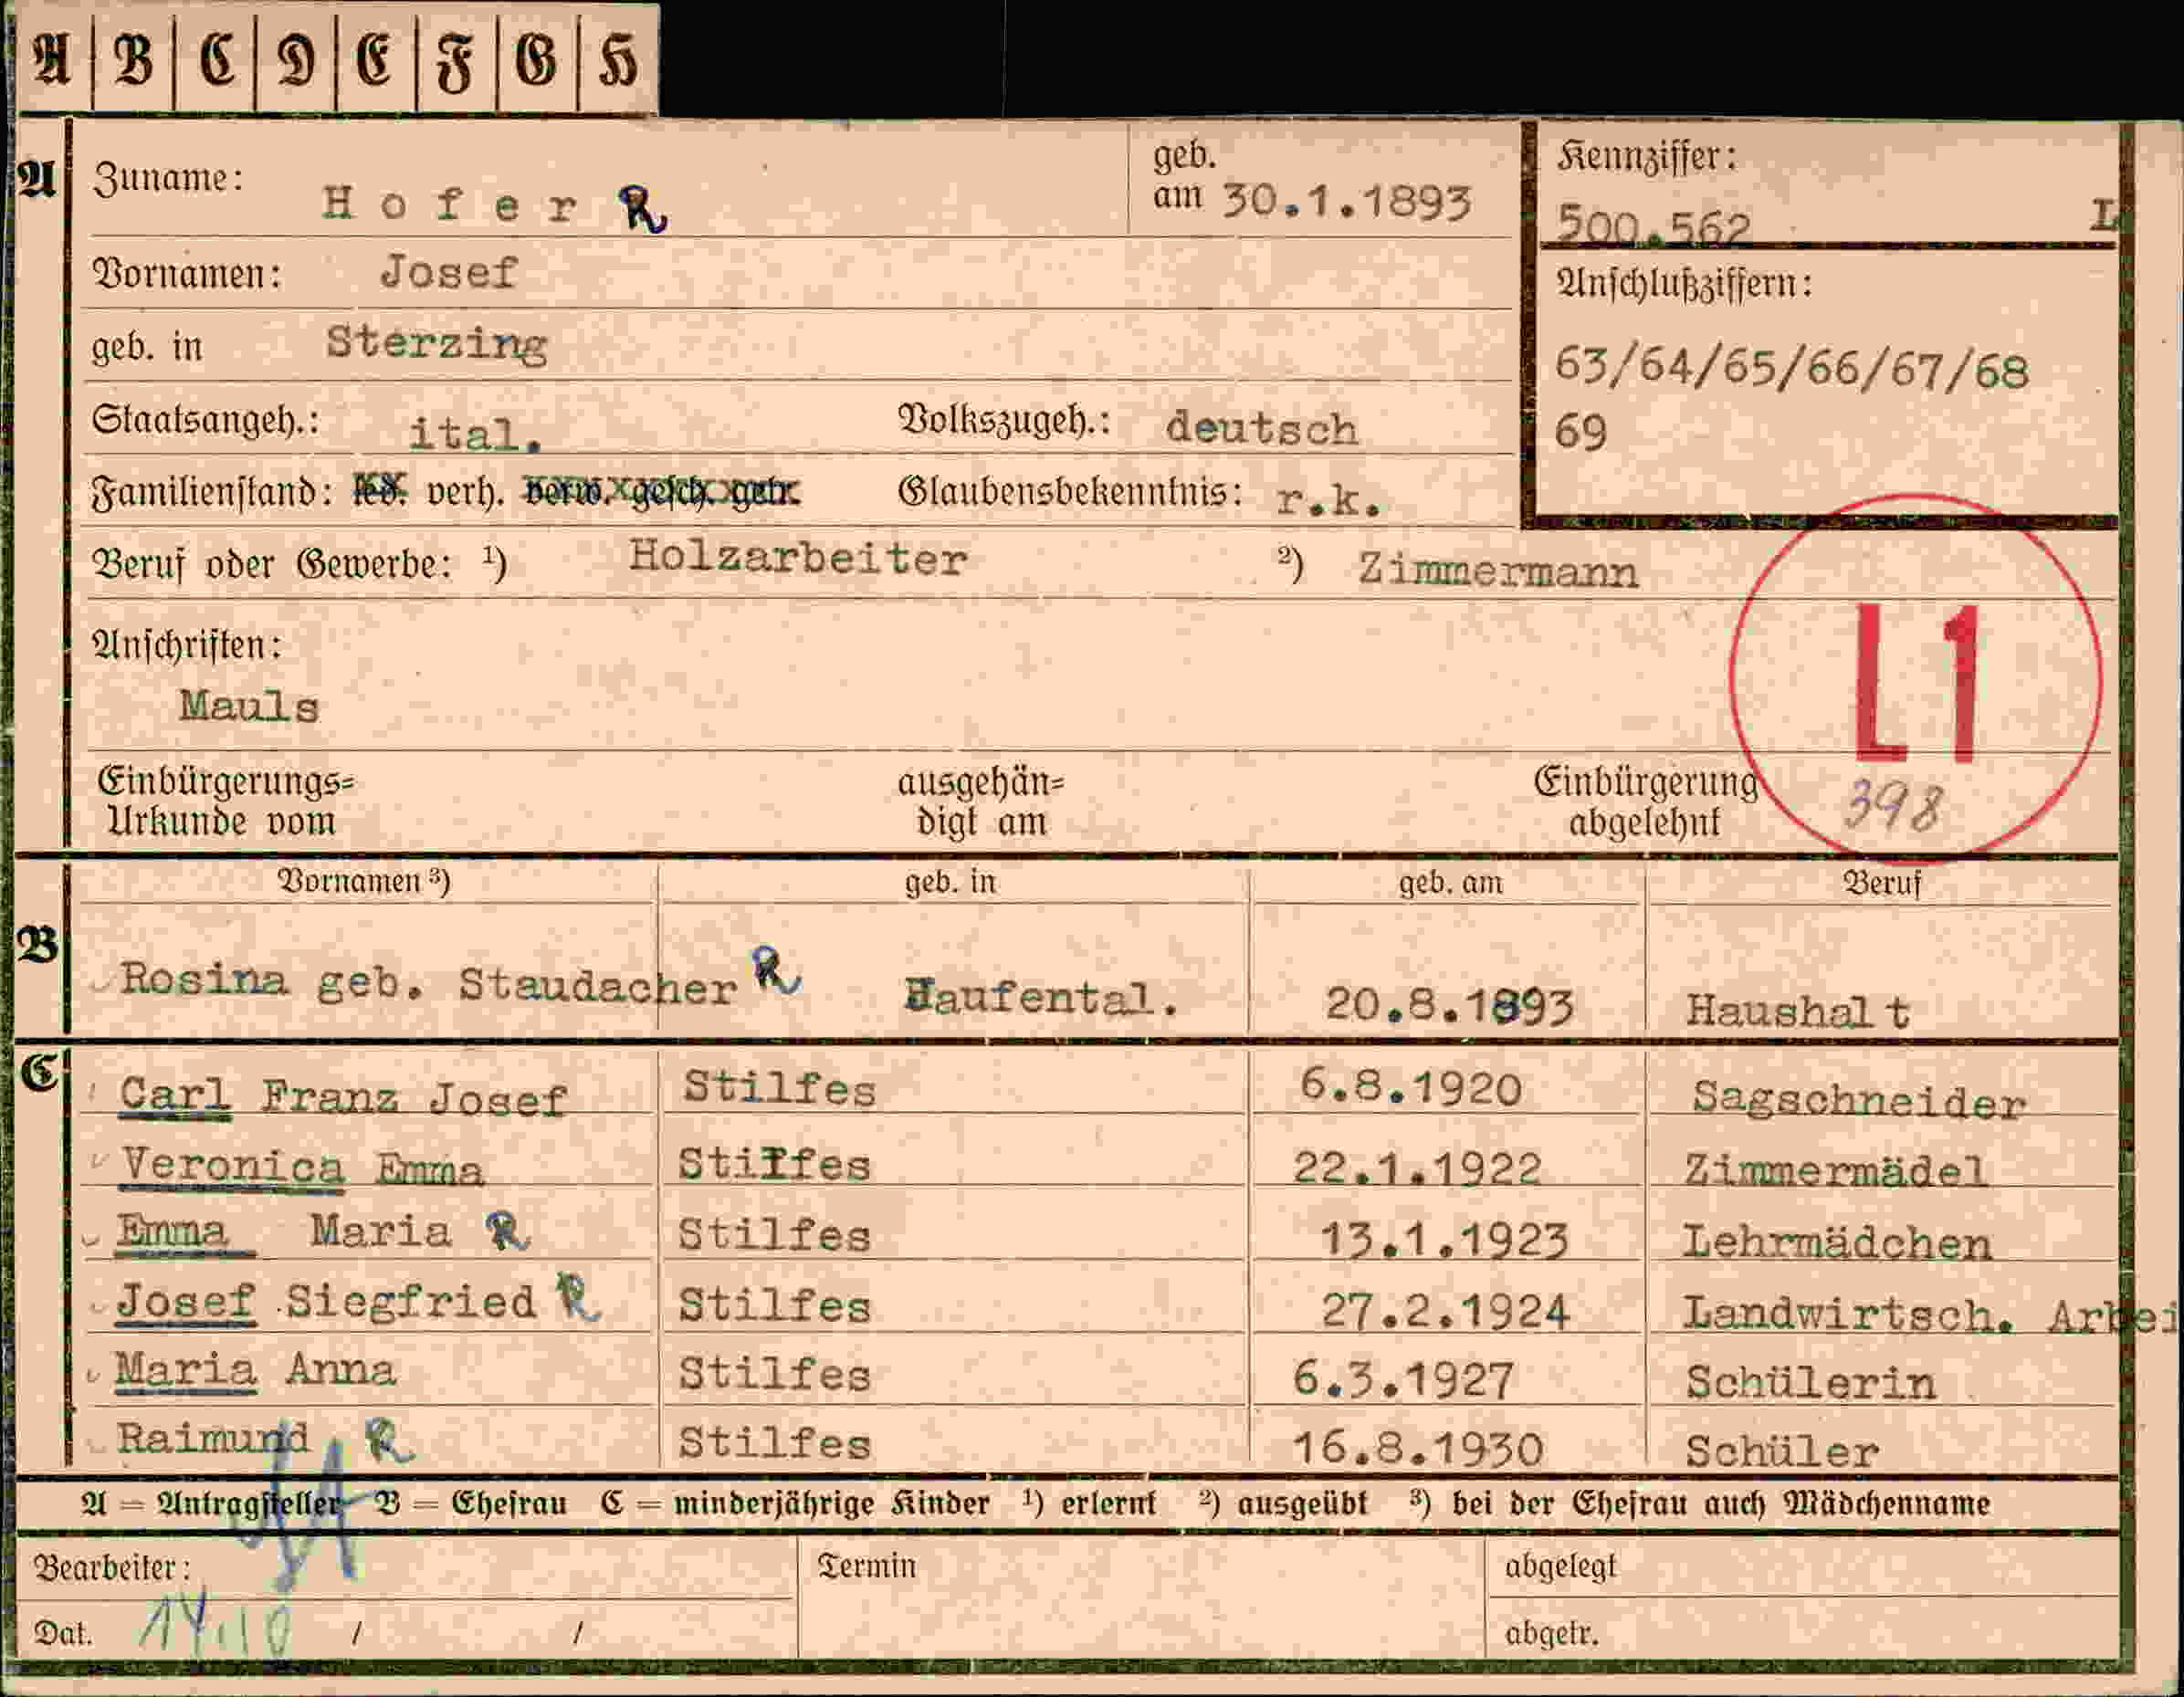 A B C D E F G H
A Zuname: Hofer R geb. am 30.1.1893 Kennziffer: 500.562 L
Vornamen: Josef Anschlußziffern:
geb. in Sterzing 63/64/65/66/67/68
Staatsangeh.: ital. Volkszugeh.: deutsch 69
Familienstand: led. verh. verw. gesch. getr. Glaubensbekenntnis: r.k.
Beruf oder Gewerbe: ¹) Holzarbeiter ²) Zimmermann
Anschriften: L1
Mauls
Einbürgerungs= ausgehän= Einbürgerung 398
Urkunde vom digt am abgelehnt
Vornamen ³) geb. in geb. am Beruf
B Rosina geb. Staudacher R Haufental. 20.8.1893 Haushalt
C Carl Franz Josef Stilfes 6.8.1920 Sagschneider
Veronica Emma Stilfes 22.1.1922 Zimmermädel
Emma Maria R Stilfes 13.1.1923 Lehrmädchen
Josef Siegfried R Stilfes 27.2.1924 Landwirtsch. Arbei
Maria Anna Stilfes 6.3.1927 Schülerin
Raimund R Stilfes 16.8.1930 Schüler
A = Antragsteller B = Ehefrau C = minderjährige Kinder ¹) erlernt ²) ausgeübt ³) bei der Ehefrau auch Mädchenname
Bearbeiter: Termin abgelegt
Dat. 14.10 / / abgetr.